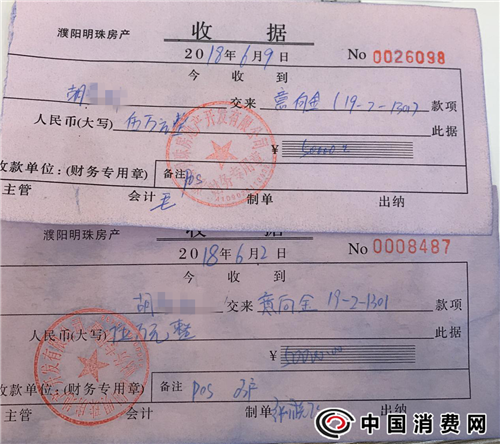 濮阳明珠房产 收 据
2018年6月9日 No 0026098
今 收 到
胡 交来 意向金(19-2-1301) 款项
人民币(大写) 伍万元整 此据
¥ 50000
收款单位:(财务专用章) 备注 POS
主管 会计 毛 制单 出纳
濮阳明珠房产 收 据
2018年6月2日 No 0008487
今 收 到
胡 交来 意向金 19-2-1301 款项
人民币(大写) 伍万元整 此据
¥ 50000.00
收款单位:(财务专用章) 备注 POS
主管 会计 制单 出纳
中国消费网